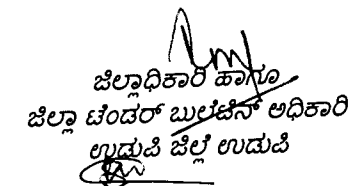 ಜಿಲ್ಲಾಧಿಕಾರಿ ಹಾಗೂ
ಜಿಲ್ಲಾ ಟೆಂಡರ್ ಬುಲೆಟಿನ್ ಅಧಿಕಾರಿ
ಉಡುಪಿ ಜಿಲ್ಲೆ ಉಡುಪಿ